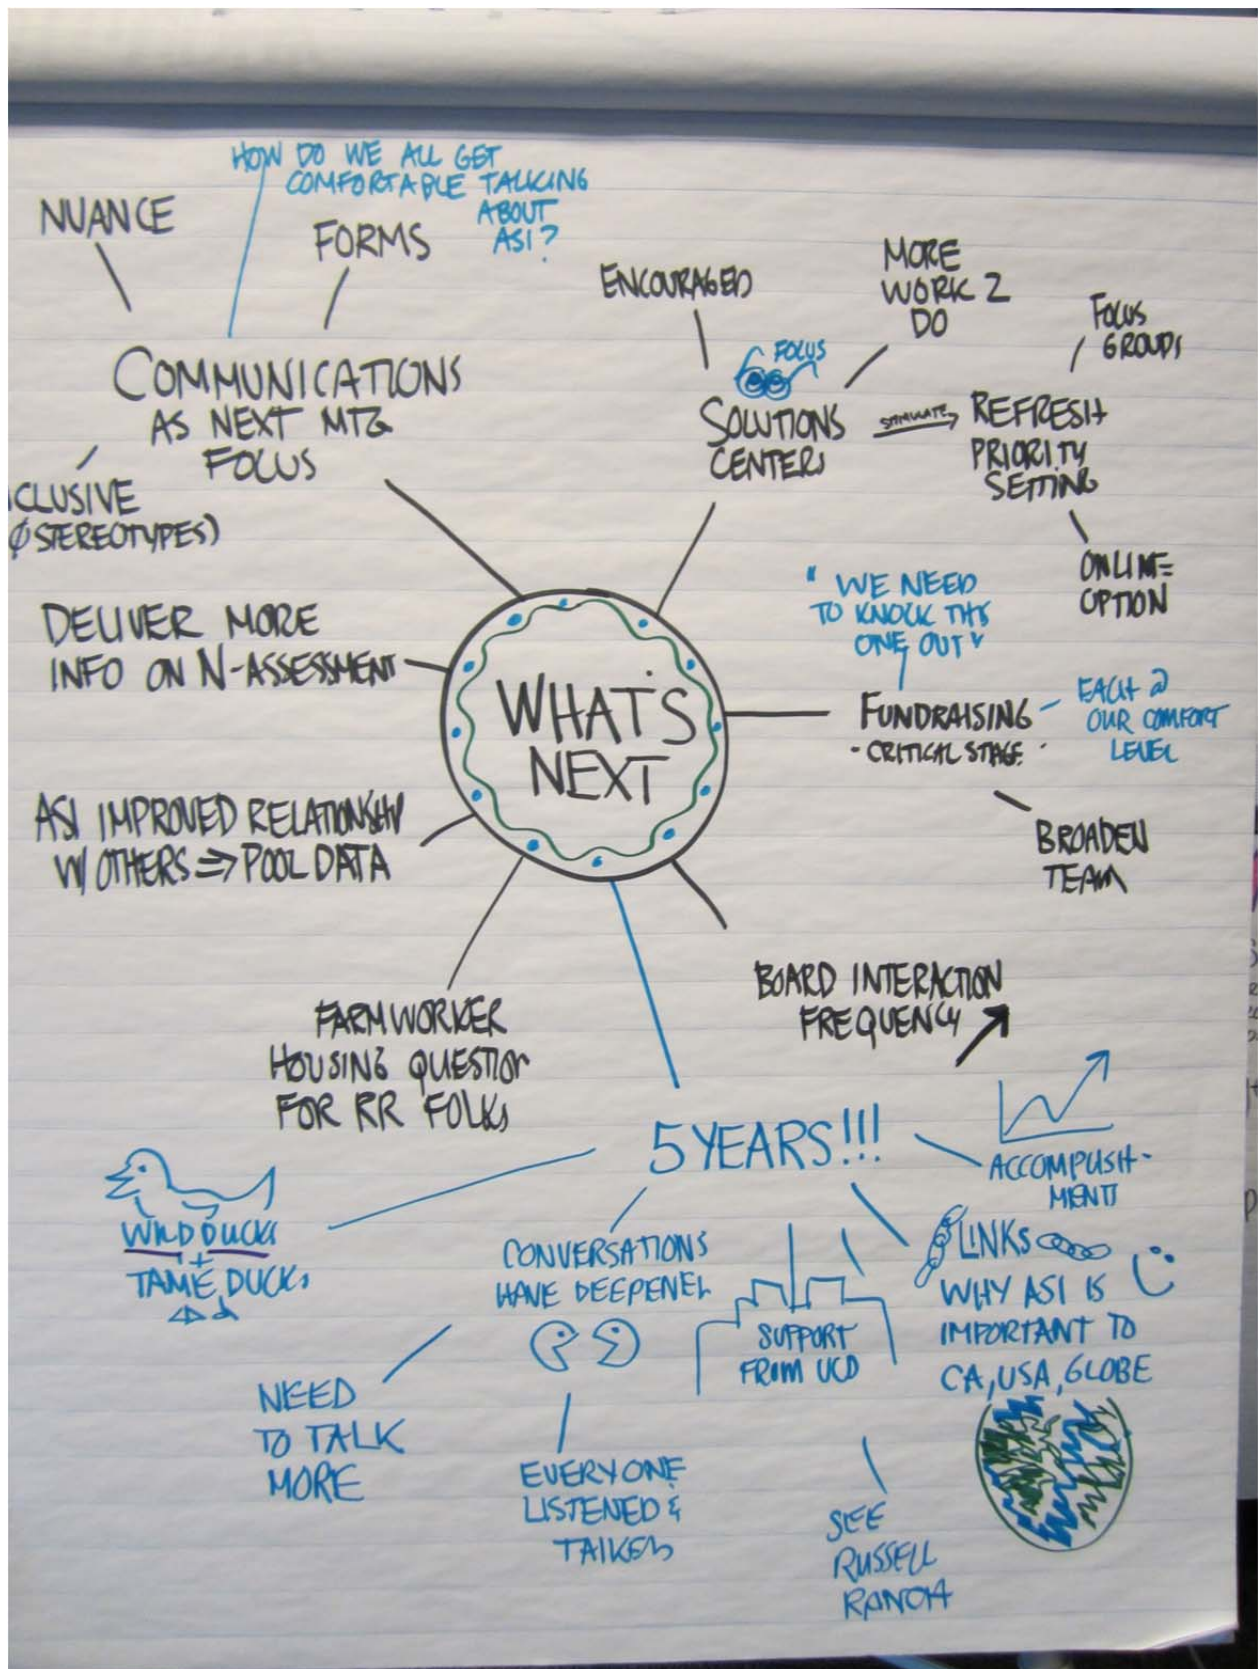 HOW DO WE ALL GET
COMFORTABLE TALKING
ABOUT
ASI?
NUANCE
FORMS
COMMUNICATIONS
AS NEXT MTG
FOCUS
CLUSIVE
(Ø STEREOTYPES)
ENCOURAGED
MORE
WORK 2
DO
FOCUS
SOLUTIONS
CENTERS
STIMULATE
REFRESH
PRIORITY
SETTING
FOCUS
GROUPS
ONLINE
OPTION
DELIVER MORE
INFO ON N-ASSESSMENT
WHAT'S
NEXT
"WE NEED
TO KNOCK THIS
ONE OUT"
FUNDRAISING
- CRITICAL STAGE -
EACH @
OUR COMFORT
LEVEL
BROADEN
TEAM
ASI IMPROVED RELATIONSHIP
W/ OTHERS ⇒ POOL DATA
FARMWORKER
HOUSING QUESTION
FOR RR FOLKS
BOARD INTERACTION
FREQUENCY
5 YEARS!!!
ACCOMPLISH-
MENTS
WILD DUCKS
+
TAME DUCKS
CONVERSATIONS
HAVE DEEPENED
NEED
TO TALK
MORE
EVERYONE
LISTENED &
TALKED
SUPPORT
FROM UCD
SEE
RUSSELL
RANCH
LINKS
WHY ASI IS
IMPORTANT TO
CA, USA, GLOBE